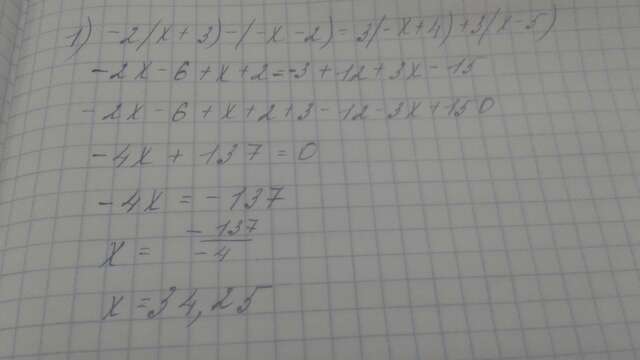 1) -2(x+3)-(-x-2)=3(-x+4)+3(x-5)
-2x-6+x+2=-3+12+3x-15
-2x-6+x+2+3-12-3x+150
-4x+137=0
-4x=-137
x=-137/-4
x=34,25